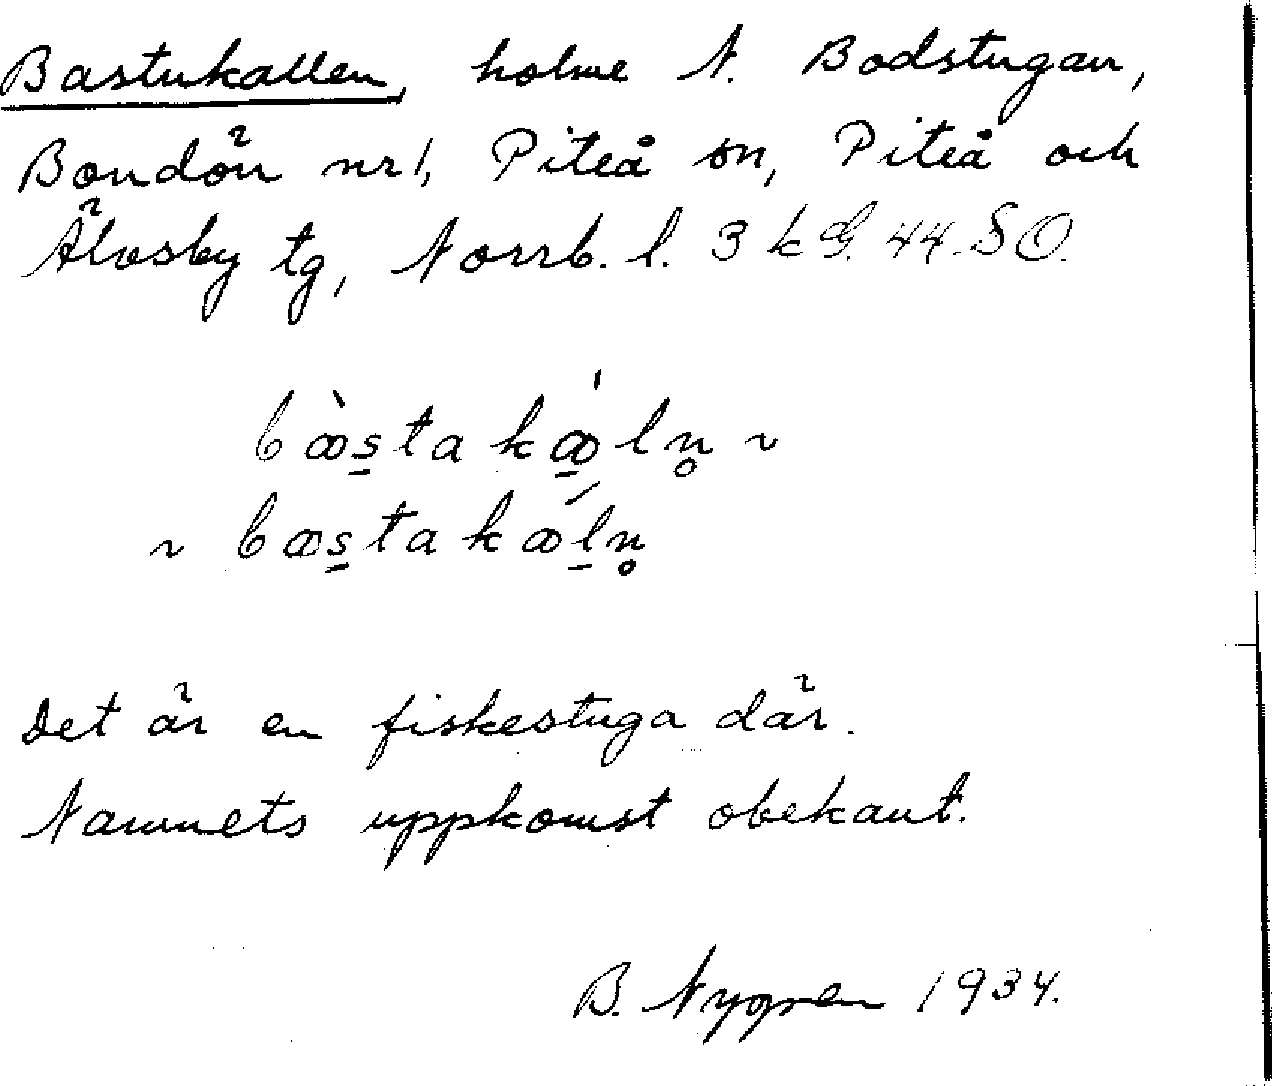 Bastukallen, holme N. Bodstugan,
Bondön nr 1, Piteå sn, Piteå och
Älvsby tg, Norrb. l. 3 k G. 44. SO.
bæ̀s̱ta kǽ̱ln̥ ~
~ bæs̱ta kǽḻn̥
Det är en fiskestuga där.
Namnets uppkomst obekant.
B. Nygren 1934.